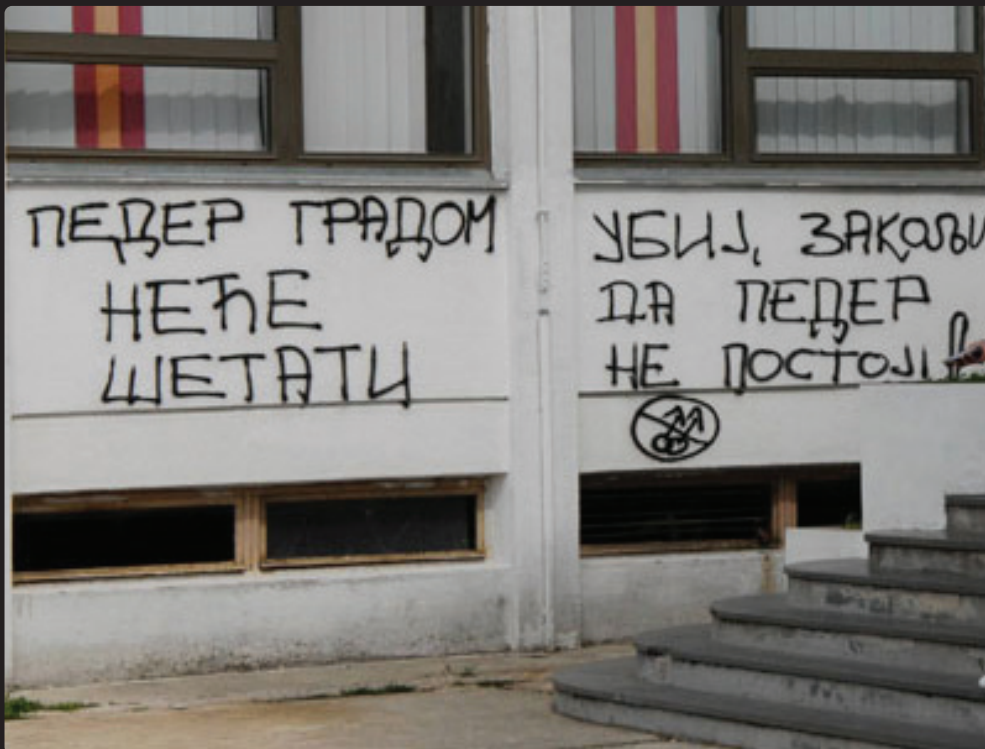 ПЕДЕР ГРАДОМ
НЕЋЕ
ШЕТАТИ
УБИЈ, ЗАКОЉИ
ДА ПЕДЕР
НЕ ПОСТОЈИ!